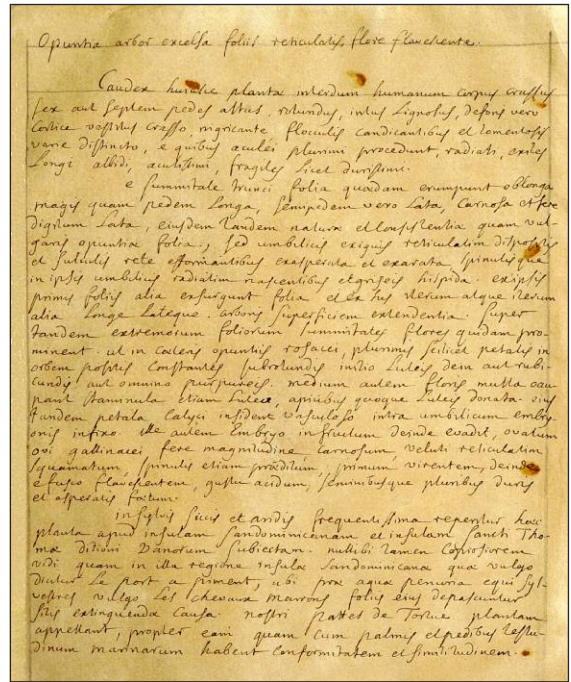 Opuntia arbor excelsa foliis reticulatis, flore flavescente.
Caudex huiusce plantæ interdum humanum corpus crassus
sex aut septem pedes altus, rotundus, intus Lignosus, deforis vero
Cortice vastitus crasso, nigricante, flocculis candicantibus et tomentosis
varie distincto, e quibus aculei plurimi procedunt, radiati, exiles
Longi albidi, acutissimi, fragiles licet durissimi.
e summitate trunci folia quædam erumpunt oblonga
magis quam pedem Longa, semipedem vero Lata, Carnosa et fere
digitum Lata, eiusdem tandem naturæ et consistentiæ quam vul-
garis opuntiæ folia, sed umbilicis exiguis reticulatim dispositis
et sulculis rete efformantibus exasperata et exarata spinulisque
in ipsis umbilicis radiatim nascentibus et griseis hispida. ex ipsis
primis foliis alia exsurgunt folia et ex his iterum atque iterum
alia Longe Lateque arboris superficiem extendentia. Super
tandem extremorum foliorum summitates flores quidam pro-
minent. ut in Cæteris opuntiis rosacei, plurimis scilicet petalis in
orbem positis Constantes subrotundis initio Luteis dein aut rubi-
cundis aut omnino purpureis. medium autem floris multa occu-
pant staminula etiam Lutea, apicibus quoque Luteis donata. eius
tandem petala Calyci insident vasculoso intra umbilicum embry-
onis infixo. ille autem Embryo in fructum deinde evadit, ovatum
ovi gallinacei fere magnitudine, Carnosum, veluti reticulatim
squamatum, spinulis etiam præditum, primum virentem, deinde
e fusco flavescentem, gustu acidum, seminibusque pluribus duris
et asperatis fœtum.
in sylvis siccis et aridis frequentissima reperitur hæc
planta apud insulam Sandominicanam et insulam Sancti Tho-
mæ ditioni Danorum Subiectam. nullibi tamen Copiosiorem
vidi quam in illa regione insulæ Sandominicanæ quæ vulgo
dicitur Le port a piment, ubi præ aquæ penuria equi Syl-
vestres vulgo Les chevaux marrons foliis eius depascuntur
sitis extinguendæ Causa. nostri pattes de Tortue plantam
appellant, propter eam quam cum palmis et pedibus testu-
dinum marinarum habent Conformitatem et similitudinem.